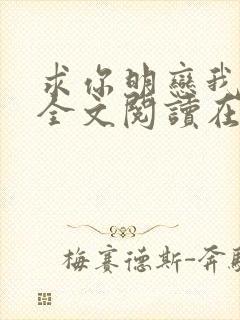 求你明戀我
全文閱讀在
梅賽德斯-奔馳